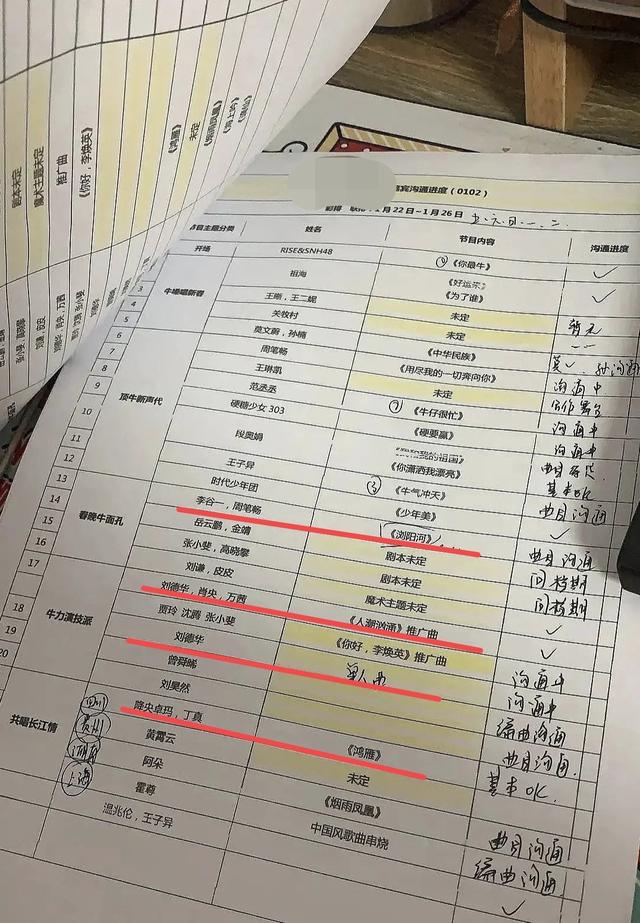 剧本未定
魔术主题未定
推广曲
《你好，李焕英》
《鸿雁》
未定
《烟雨凤凰》
宾沟通进度（0102）
1月22日~1月26日
节目主题分类 姓名 节目内容 沟通进度
开场 RISE&SNH48 《你最牛》 ✓
祖海 《好运来》
3 牛嗓唱新春 王刚，王二妮 《为了谁》 ✓
4 关牧村 未定
5 莫文蔚，孙楠 未定
6 周笔畅 《中华民族》
7 王琳凯 《用尽我的一切奔向你》 沟通中
8 范丞丞 未定
9 顶牛新声代 硬糖少女303 《牛仔很忙》 沟通中
10 段奥娟 《硬要赢》 沟通中
11 王子异 《你潇洒我漂亮》
12 时代少年团 《牛气冲天》 基本OK
13 李谷一，周笔畅 《少年美》 曲目沟通
14 春晚牛面孔 岳云鹏，金靖 《浏阳河》 ✓
15 张小斐，高晓攀 剧本未定 曲目沟通
16 刘谦，皮皮 剧本未定 问档期
17 刘德华，肖央，万茜 魔术主题未定 问档期
18 牛力演技派 贾玲 沈腾 张小斐 《人潮汹涌》推广曲 ✓
19 刘德华 《你好，李焕英》推广曲 ✓
20 曾舜晞 单人曲 沟通中
刘昊然 沟通中
共唱长江情 四川 降央卓玛，丁真 编曲沟通
贵州 黄霄云 《鸿雁》 曲目沟通
湖南 阿朵 未定 基本OK.
上海 霍尊 《烟雨凤凰》
温兆伦，王子异 中国风歌曲串烧 曲目沟通
编曲沟通
✓